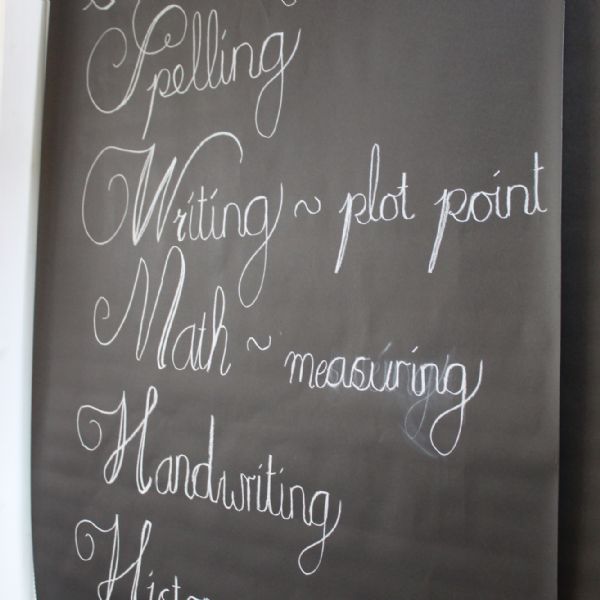 Spelling
Writing ~ plot point
Math ~ measuring
Handwriting